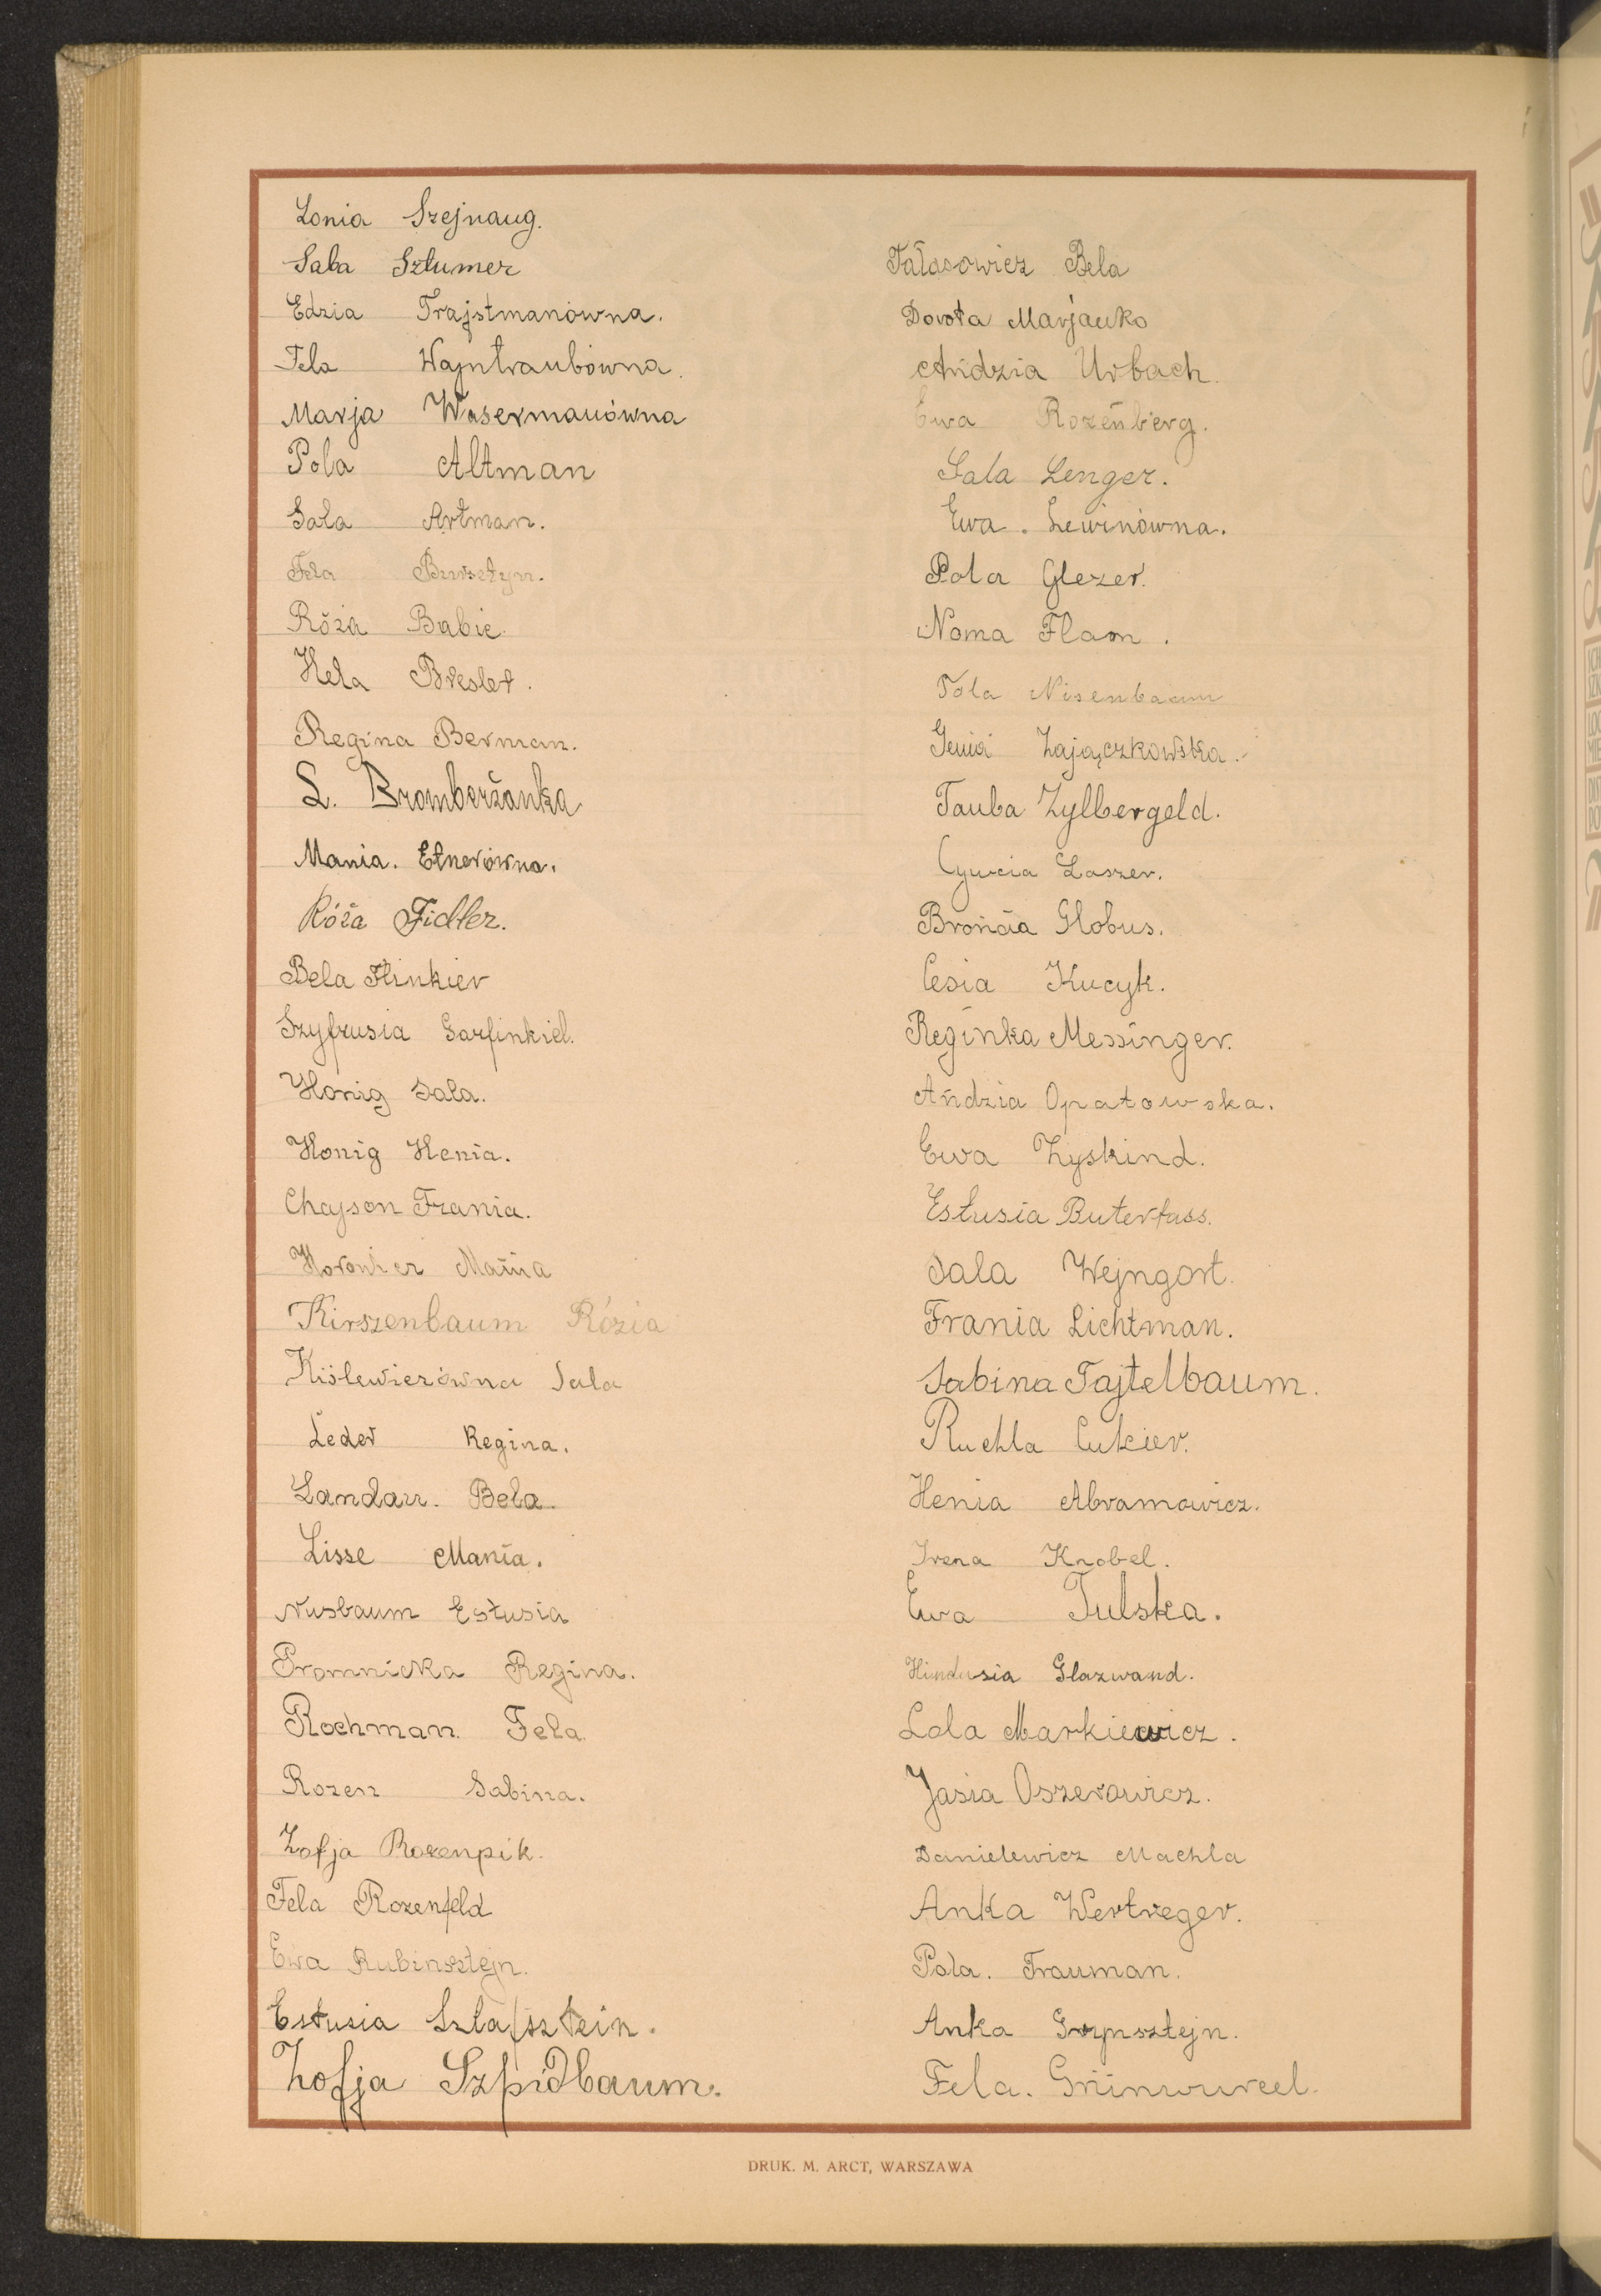 Lonia Szejnaug.
Saba Sztumer
Edzia Trajstmanówna.
Fela Wajntraubówna.
Marja Wasermanówna
Pola Altman
Sala Artman.
Fela Bursztyn.
Róża Babic.
Hela Bresler.
Regina Berman.
L. Bromberżanka
Mania. Etnerówna.
Róża Fidler.
Bela Flinkier
Szyfrusia Garfinkiel.
Honig Sala.
Honig Henia.
Chajson Frania.
Horowicz Mania
Kirszenbaum Rózia
Kiślewiczówna Sala
Leder Regina.
Landau. Bela.
Lisse Mania.
Nusbaum Estusia
Promnicka Regina.
Rochman. Fela.
Rozen Sabina.
Zofja Rozenpik.
Fela Rozenfeld
Ewa Rubinsztejn.
Estusia Szlafsztein.
Zofja Szpidbaum.
Tałasowicz Bela
Dorota Marjanko
Andzia Urbach.
Ewa Rozenberg.
Sala Lenger.
Ewa. Lewinówna.
Pola Glezer.
Noma Flam.
Pola Nisenbaum
Genia Zajączkowska.
Tauba Zylbergeld.
Cywia Laszer.
Brońcia Globus.
Cesia Kucyk.
Reginka Messinger.
Andzia Opatowska.
Ewa Zyskind.
Estusia Buterfass.
Sala Wejngort.
Frania Lichtman.
Sabina Tajtelbaum.
Ruchla Cukier.
Henia Abramowicz.
Irena Knobel.
Ewa Tulska.
Hindusia Glazwand.
Lola Markiewicz.
Jasia Oszerowicz.
Danielewicz Machla
Anka Wertzeger.
Pola. Frauman.
Anka Grynsztejn.
Fela. Grünwurcel.
DRUK. M. ARCT, WARSZAWA